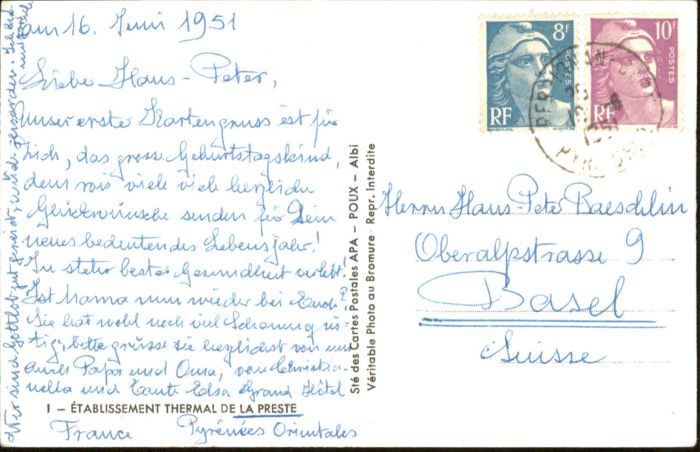 am 16. Juni 1951
Liebe Hans-Peter,
unser erste Kartengruss ist für
Dich, das grosse Geburtstagskind,
dem wir viele viele herzliche
Glückwünsche senden für Dein
neues bedeutendes Lebensjahr!
In steter bester Gesundheit verlebt!
Ist Mama nun wieder bei Euch?
Sie hat wohl noch viel Schonung nö-
tig, bitte grüsse sie herzlichst von uns
auch Papa und Oma, von Christia-
nella und Tante Elsa Grand Hôtel
I - ÉTABLISSEMENT THERMAL DE LA PRESTE
France Pyrénées Orientales
Wir sind Gottlob gut gereist
Sté des Cartes Postales APA - POUX - Albi
Véritable Photo au Bromure - Repr. Interdite
8F
POSTES
RF
10F
POSTES
RF
PYR. OR
Herrn Hans Peter Baeschlin
Oberalpstrasse 9
Basel
Suisse